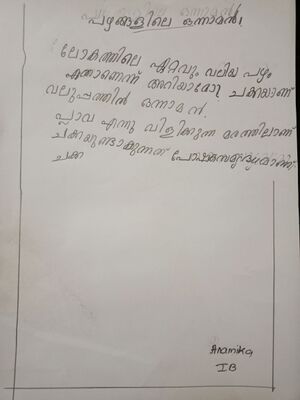 പഴങ്ങളിലെ ഒന്നാമൻ!
ലോകത്തിലെ ഏറ്റവും വലിയ പഴം
ഏതാണെന്ന് അറിയാമോ? ചക്കയാണ്
വലുപ്പത്തിൽ ഒന്നാമൻ.
പ്ലാവ് എന്നു വിളിക്കുന്ന മരത്തിലാണ്
ചക്കയുണ്ടാകുന്നത് പോഷകസമൃദ്ധമാണ്
ചക്ക
Anamika
I B